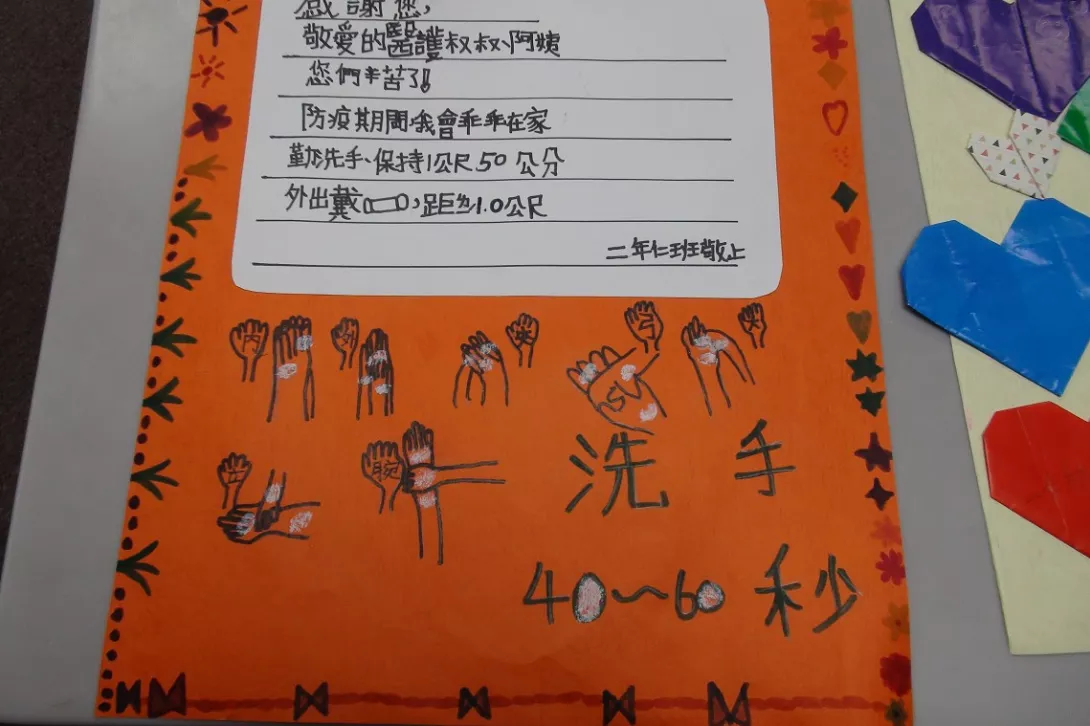 感謝您,
敬愛的醫護叔叔、阿姨
您們辛苦了!
防疫期間,我會乖乖在家
勤洗手、保持1公尺50公分
外出戴,距為1.0公尺
二年仁班敬上
內 外 夾 弓 大
立 腕
洗手
40~60秒